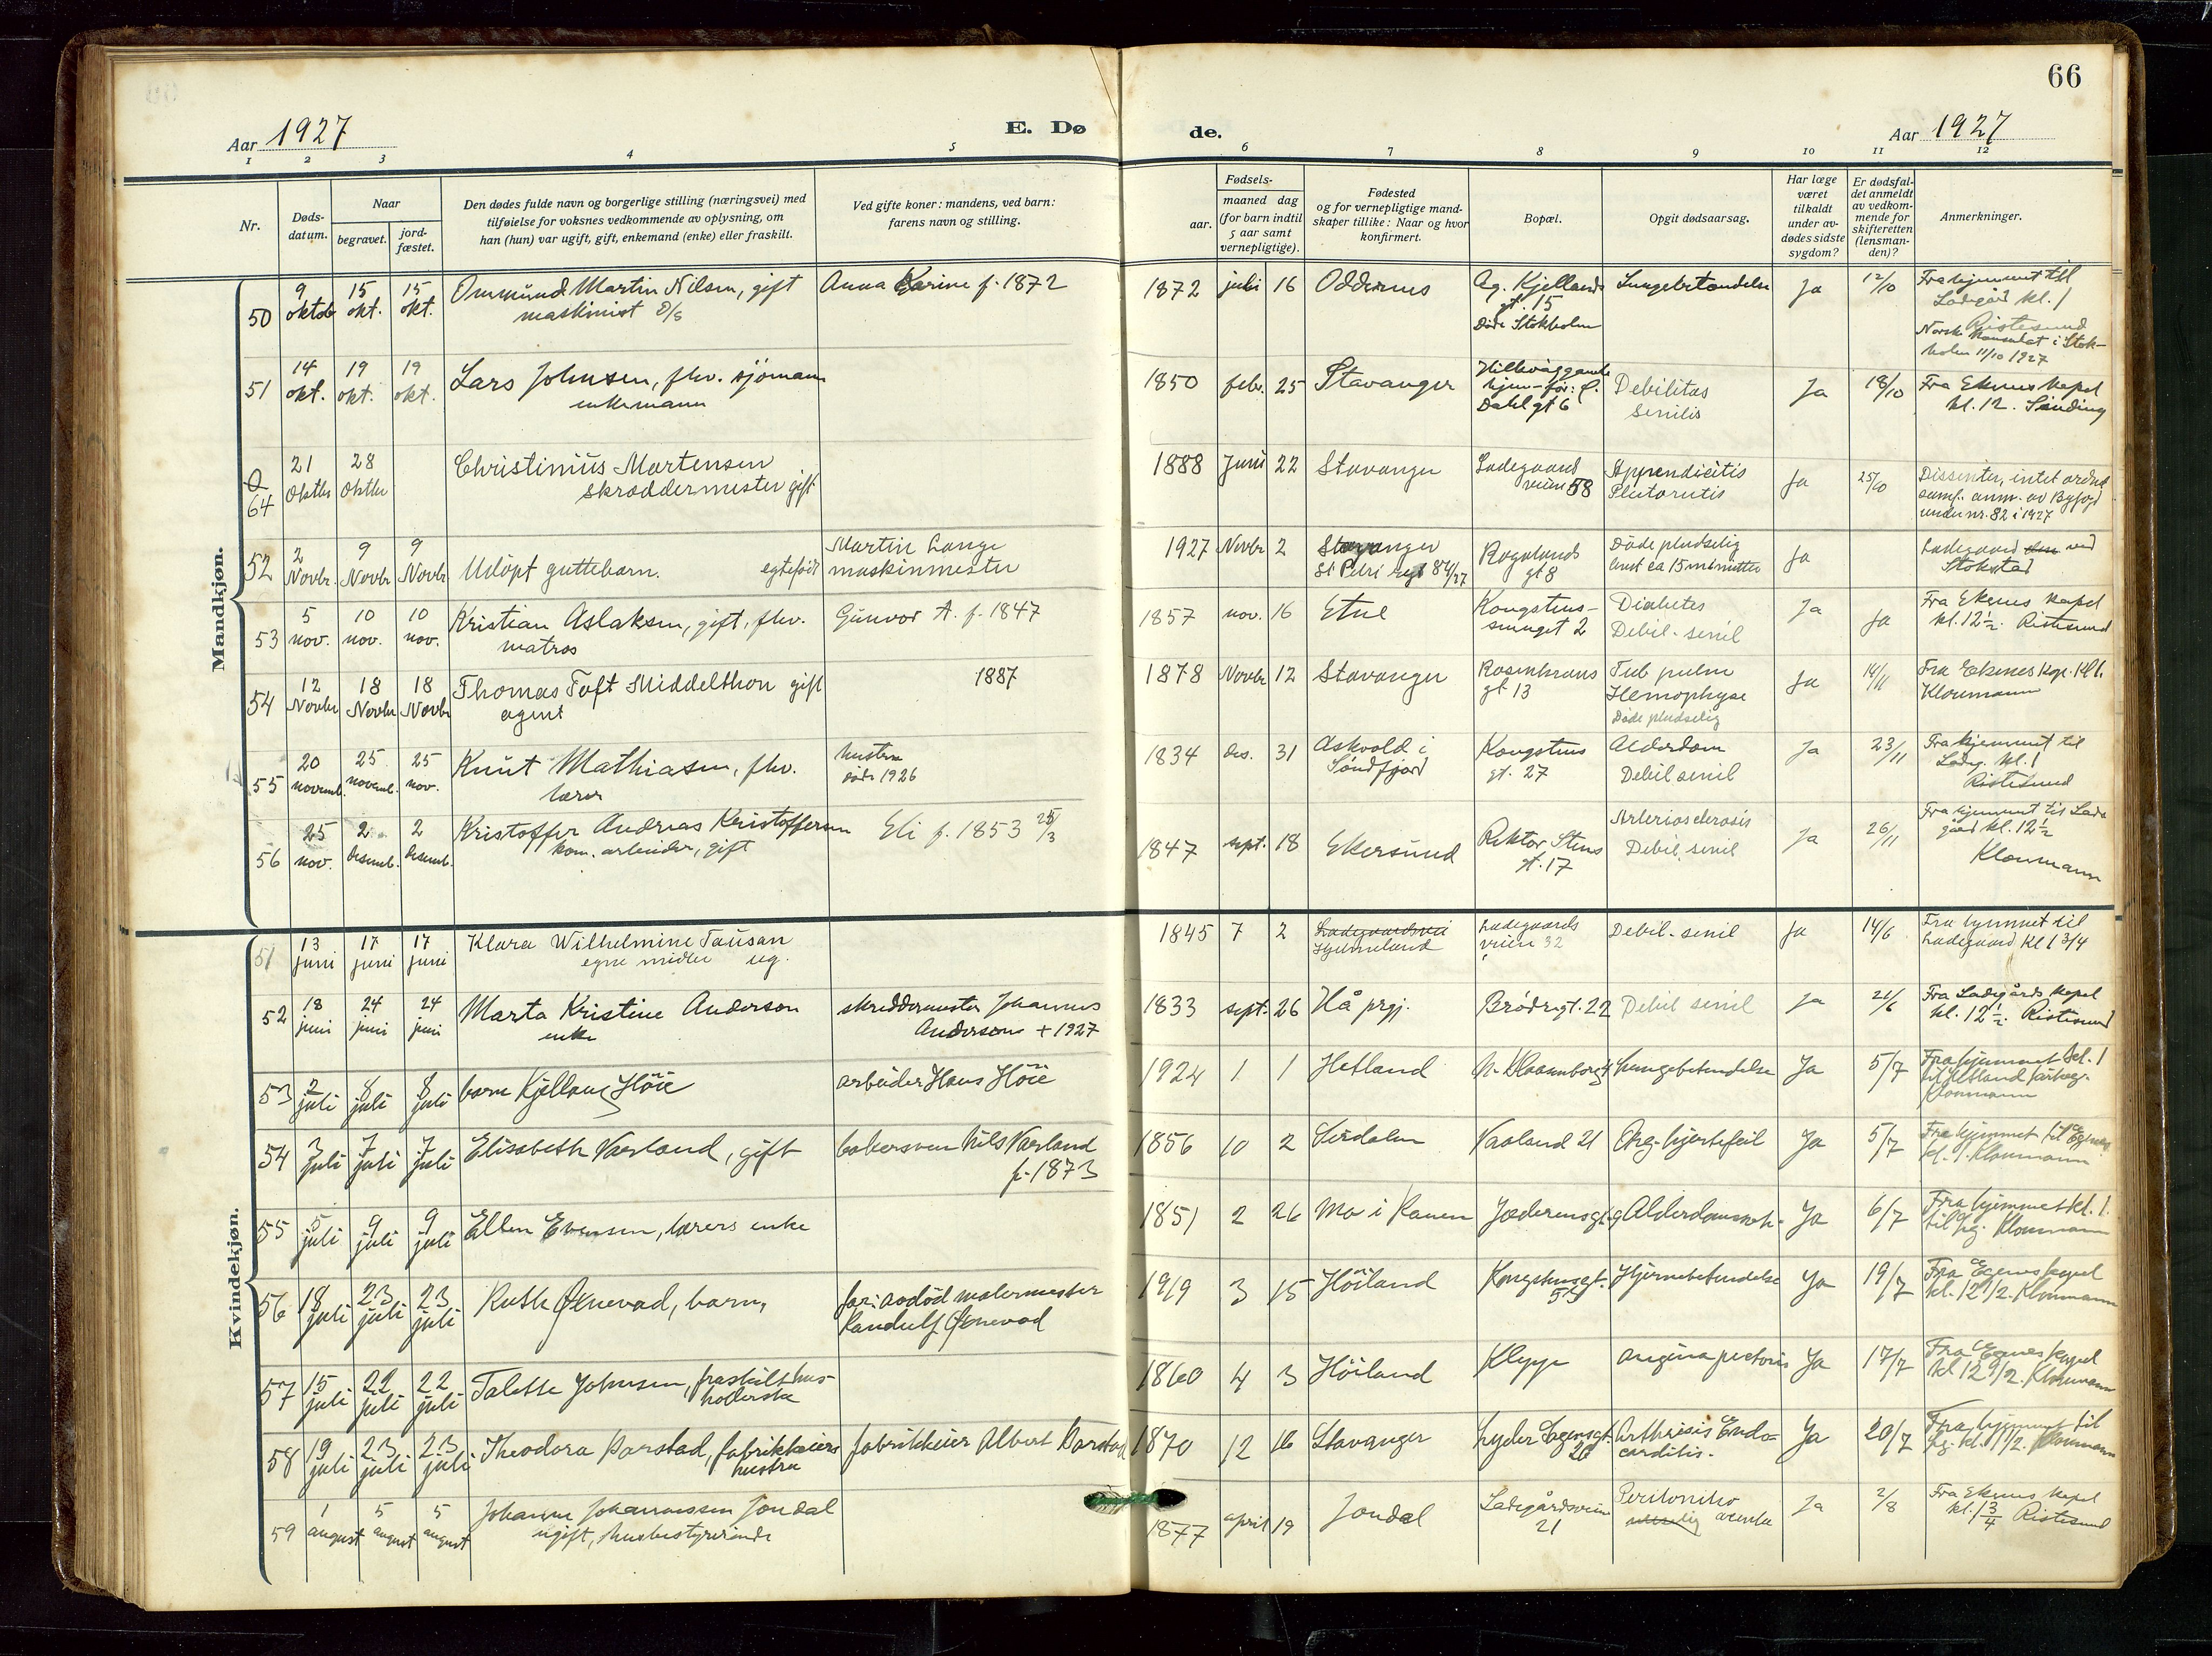 66
Aar 1927
E. Dø de.
Aar 1927
1 2 3 4 5 6 7 8 9 10 11 12
Nr.
Døds-
datum.
Naar
begravet.
jord-
fæstet.
Den dødes fulde navn og borgerlige stilling (næringsvei) med
tilføielse for voksnes vedkommende av oplysning, om
han (hun) var ugift, gift, enkemand (enke) eller fraskilt.
Ved gifte koner: mandens, ved barn:
farens navn og stilling.
Fødsels-
aar.
maaned dag
(for barn indtil
5 aar samt
vernepligtige).
Fødested
og for vernepligtige mand-
skaper tillike: Naar og hvor
konfirmert.
Bopæl.
Opgit dødsaarsag.
Har læge
været
tilkaldt
under av-
dødes sidste
sygdom?
Er dødsfal-
det anmeldt
av vedkom-
mende for
skifteretten
(lensman-
den)?
Anmerkninger.
Mandkjøn.
50 9 oktob 15 okt. 15 okt. Ommund Martin Nilsen, gift
maskinist D/S
Anna Karine f. 1872
1872 juli 16 Oddernes Ag. Kjellands
gt. 15
Døde Stokholm
Lungebetændelse Ja 12/10 Fra hjemmet til
Ladegård kl. 1
Ristesund
Norske Konsulat i Stok-
holm 11/10 1927
51 14 okt. 19 okt. 19 okt. Lars Johnsen, fhv. sjömann
enkemann
1850 febr. 25 Stavanger
Dahl gt 6
Debilitas
senilis
Ja 18/10 Fra Ekenes kapel
kl. 12. Sinding
0
64 21 Oktbr 28 Oktbr Christinius Martensen
skræddermester gift
1888 Juni 22 Stavanger Ladegaards
veien 58
Appendicitis
Ja 25/10 Dissenter, intet ordnet
samf. anm. av Byfogd
under nr. 82 i 1927
52 2 Novbr. 9 Novbr 9 Novbr Udöpt guttebarn. egtefødt
Martin Lange
maskinmester
1927 Novbr 2 Stavanger
St Petri regt 84/27
Rogalands
gt 8
Døde pludselig
omt ca 15 minutter
Ja Ladegaard ved
Stokstad
53 5 nov. 10 nov. 10 nov. Kristian Aslaksen, gift, fhv.
matros
Gunvor A. f. 1847
1857 nov. 16 Etne Kongstens-
smuget 2
Diabetes
Debil. senil
Ja Ja Fra Ekenes kapel
kl. 12½. Ristesund
54 12 Novbr 18 Novbr 18 Novbr Thomas Toft Middelthon gift
agent
1887
1878 Novbr 12 Stavanger Rosenkrans
gt 13
Tub pulm
Hemophyse
Døde pludselig
Ja 14/11 Fra Ekenes kap. Kl 1.
Kloumann
55 20 novemb. 25 novemb. 25 nov. Knut Mathiasen, fhv.
lærer
hustru
døde 1926
1834 des. 31 Askvold i
Söndfjord
Kongstens
gt. 27
Alderdom
Debil senil
Ja 23/11 Fra hjemmet til
Ladeg. kl. 1
Ristesund
56 25 nov. 2 desemb. 2 desemb. Kristoffer Andreas Kristoffersen
kom. arbeider, gift
Eli f. 1853 25/3
1847 sept. 18 Ekersund Rektor Stens
gt. 17
Arteriosclerosis
Debil. senil
Ja 26/11 Fra hjemmet til Lade
gård kl. 12½
Kloumann
Kvindekjøn.
51 13 juni 17 juni 17 juni Klara Wilhelmine Tausan
egne midler ug.
1845 7 2 Ladegaardsvei
Hjelmeland
Ladegaards
veien 32
Debil. senil Ja 14/6 Fra hjemmet til
Ladegaard Kl 1 3/4
52 18 juni 24 juni 24 juni Marta Kristine Anderson
enke
skreddermester Johannes
Anderson + 1927
1833 sept. 26 Hå prgj. Brödregt. 22 Debil senil Ja 21/6 Fra Ladegårds kapel
kl. 12½. Ristesund
53 2 juli 8 juli 8 juli barn Kjellaug Höie
arbeider Hans Höie
1924 1 1 Hetland Lungebetændelse Ja 5/7 Fra hjemmet kl. 1
Kloumann
54 3 juli 7 juli 7 juli Elisabeth Varland, gift
bakersven Nils Varland
f. 1873
1856 10 2 Sirdalen Vaaland 21 Org. hjertefeil Ja 5/7 Fra hjemmet til Egenes
kl. 1. Kloumann
55 5 juli 9 juli 9 juli Ellen Evensen, lærers enke
1851 2 26 Mo i Ranen Jæderensgt. Ja 6/7 Fra hjemmet kl. 1
til Lg. Kloumann
56 18 juli 23 juli 23 juli Ruth Øknevad, barn,
far: avdöd malermester
Randulf Øknevad
1919 3 15 Höiland Kongstensgt.
53
Hjernebetendelse Ja 19/7 Fra Egenes kapel
kl. 12 1/2. Kloumann
57 15 juli 22 juli 22 juli Talette Johnsen, fraskilt hus-
holderske
1860 4 3 Höiland Klepp angina pectoris Ja 17/7 Fra Egenes kapel
kl 12 1/2. Kloumann
58 19 juli 23 juli 23 juli Theodora Barstad, fabrikkeiers
hustru
fabrikkeier Albert Barstad
1870 12 16 Stavanger Lyder Sagensgt.
26
Arthrisis Endo-
carditis.
Ja 20/7 Fra hjemmet til
Lg. kl. 1 1/2. Kloumann
59 1 august 5 august 5 august Johanne Johannessen Jondal
ugift, husbestyrerinde
1877 april 19 Jondal Ladegårdsveien
21
Ja 2/8 Fra Ekenes kapel
kl. 1 3/4 Ristesund